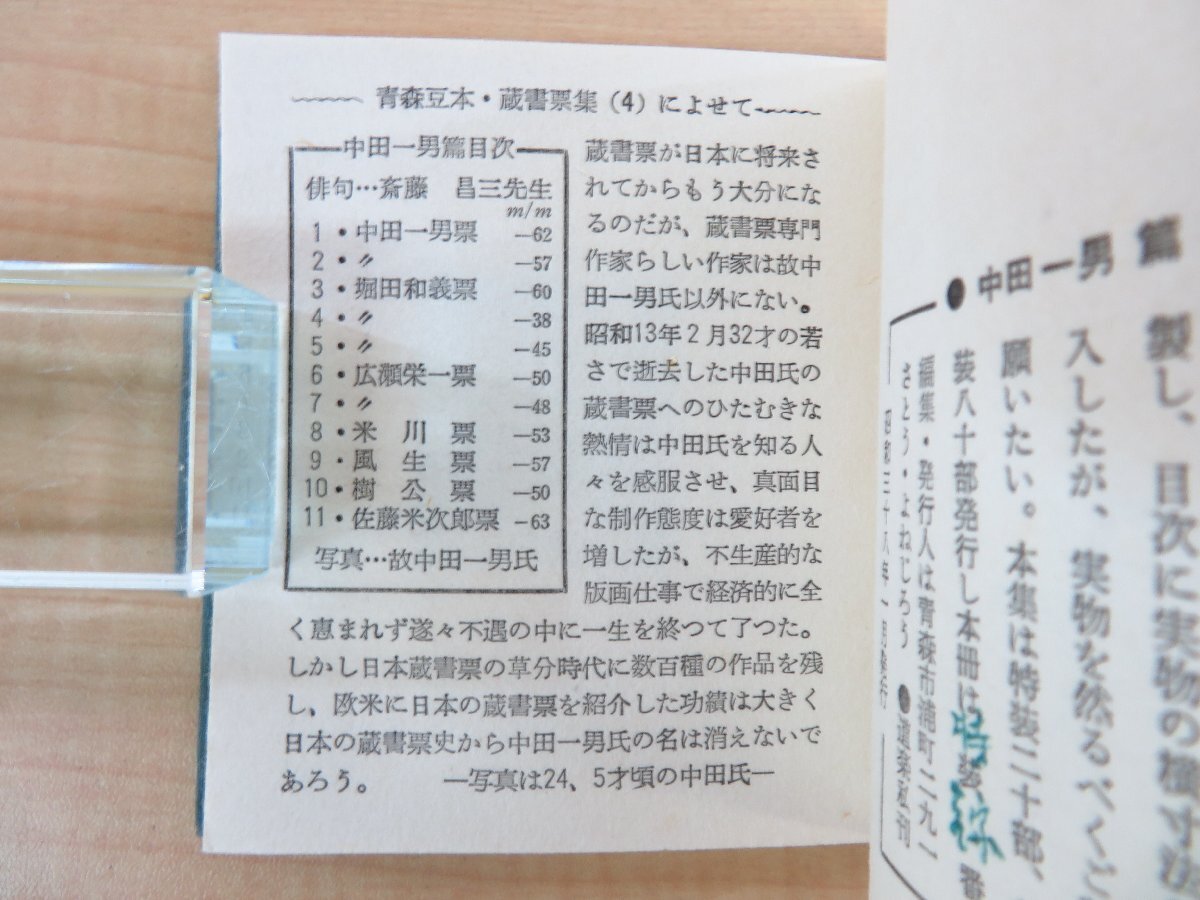 青森豆本・蔵書票集(4)によせて
中田一男篇目次
俳句…斎藤 昌三先生
m/m
1・中田一男票 —62
2・〃 —57
3・堀田和義票 —60
4・〃 —38
5・〃 —45
6・広瀬栄一票 —50
7・〃 —48
8・米川票 —53
9・風生票 —57
10・樹公票 —50
11・佐藤米次郎票 —63
写真…故中田一男氏
蔵書票が日本に将来さ
れてからもう大分にな
るのだが、蔵書票専門
作家らしい作家は故中
田一男氏以外にない。
昭和13年2月32才の若
さで逝去した中田氏の
蔵書票へのひたむきな
熱情は中田氏を知る人
々を感服させ、真面目
な制作態度は愛好者を
増したが、不生産的な
版画仕事で経済的に全
く恵まれず遂々不遇の中に一生を終つて了つた。
しかし日本蔵書票の草分時代に数百種の作品を残
し、欧米に日本の蔵書票を紹介した功績は大きく
日本の蔵書票史から中田一男氏の名は消えないで
あろう。 —写真は24、5才頃の中田氏—
製し、目次に実物の横寸法
入したが、実物を然るべくご
願いたい。本集は特装二十部、
装八十部発行し本冊は
番
●中田一男篇
編集・発行人は青森市浦町二九一
さとう・よねじろう ●道楽私刊